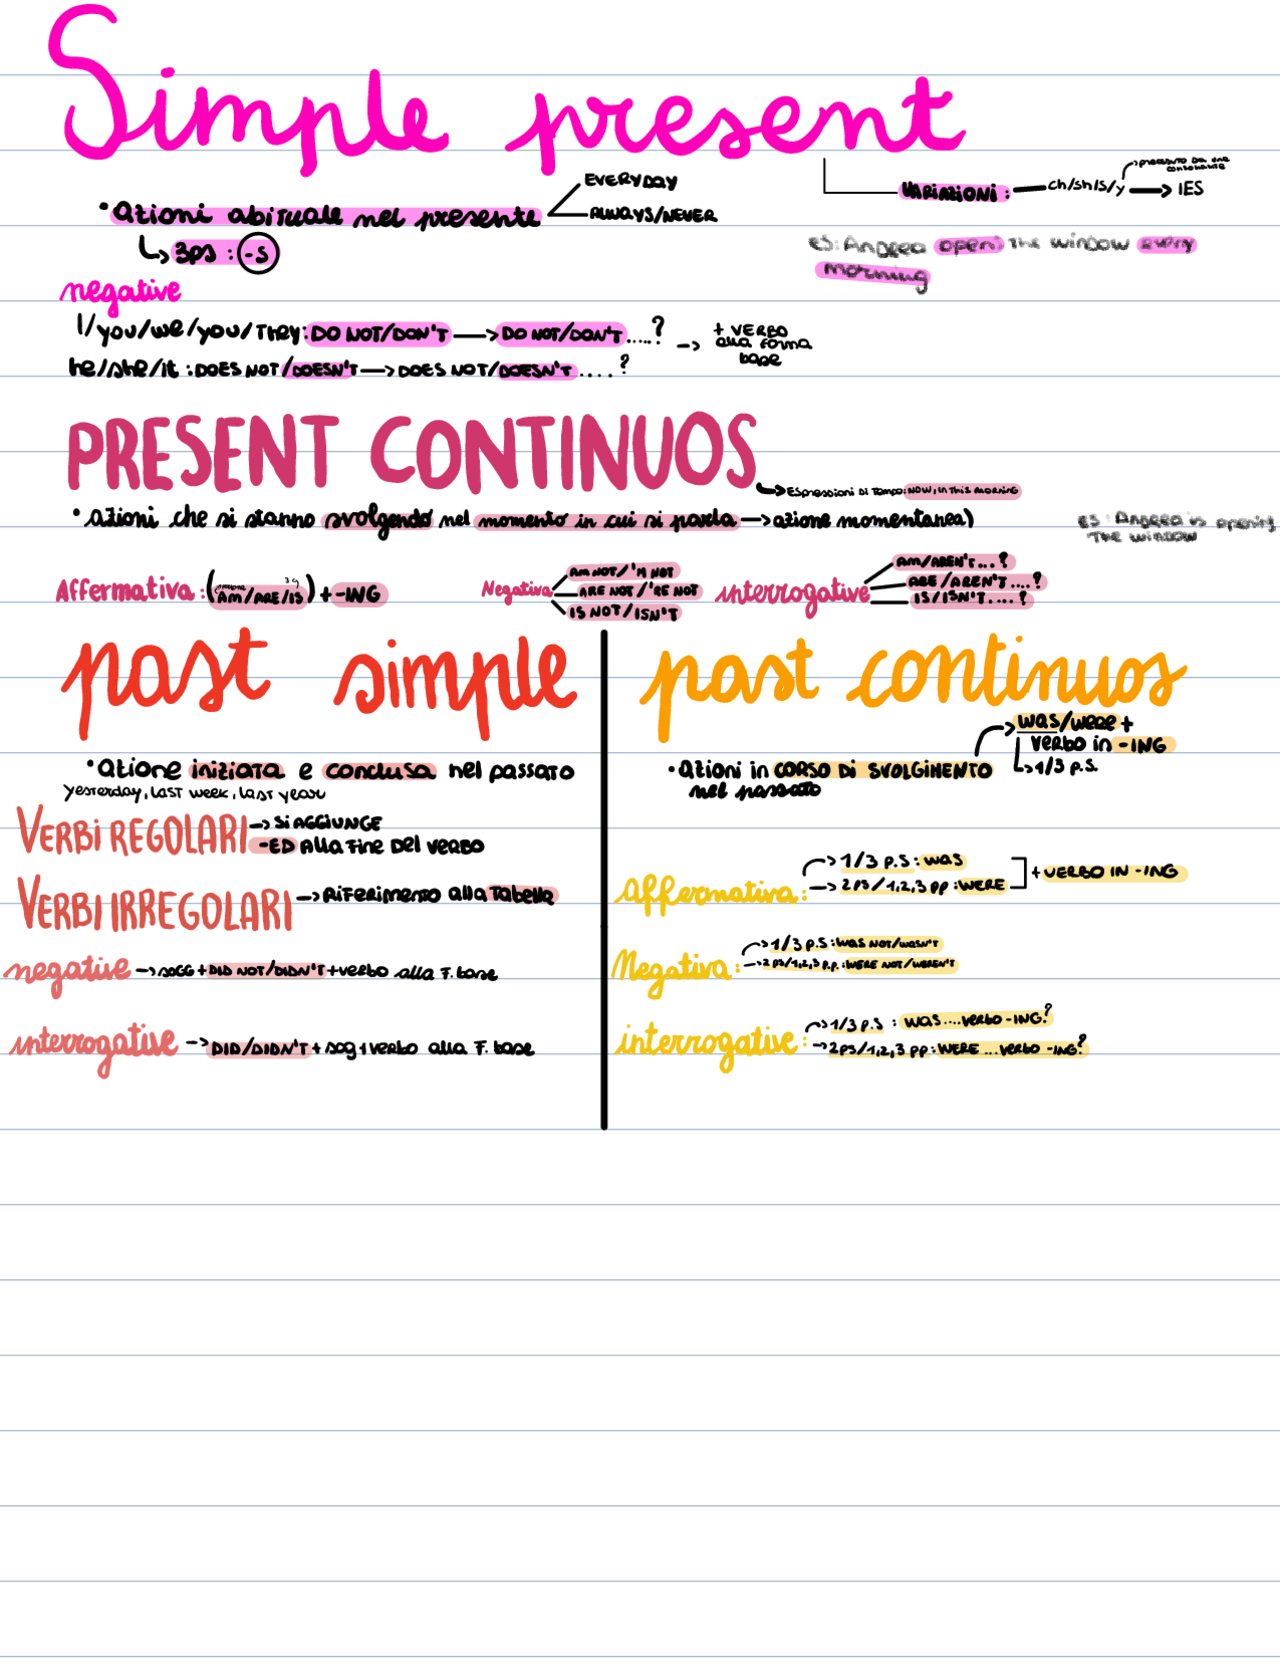 Simple present
VARIAZIONI: ch/sh/s/y → IES
preceduto da una consonante
• azioni abituale nel presente
EVERYDAY
ALWAYS/NEVER
↳ 3ps : -s
ES: Andrea opens the window every
morning
negative
I/you/we/you/they: DO NOT/DON'T → DO NOT/DON'T.....? → + VERBO
alla forma
base
he/she/it : DOES NOT/DOESN'T → DOES NOT/DOESN'T....?
PRESENT CONTINUOS
↳ Espressioni di tempo: NOW, in this morning
• azioni che si stanno svolgendo nel momento in cui si parla → azione momentanea)
ES: Andrea is opening
the window
Affermativa : (AM/ARE/IS) + -ING
3s
Negativa
AM NOT/'M NOT
ARE NOT/'RE NOT
IS NOT/ISN'T
interrogative
AM/AREN'T...?
ARE/AREN'T....?
IS/ISN'T....?
past simple
• azione iniziata e conclusa nel passato
yesterday, last week, last year
VERBI REGOLARI → SI AGGIUNGE
-ED alla fine del verbo
VERBI IRREGOLARI → Riferimento alla tabella
negative → sogg + DID NOT/DIDN'T + verbo alla f. base
interrogative → DID/DIDN'T + sog + verbo alla f. base
past continuos
→ was/were +
verbo in -ING
↳ 1/3 p.s.
• azioni in CORSO DI SVOLGIMENTO
nel passato
affermativa :
→ 1/3 p.s : was
→ 2ps/1,2,3 pp : WERE
+ VERBO IN -ING
Negativa :
→ 1/3 p.s : was not/wasn't
→ 2ps/1,2,3 p.p. : WERE NOT/WEREN'T
interrogative :
→ 1/3 p.s : was....verbo -ING?
→ 2ps/1,2,3 pp : WERE...verbo -ING?